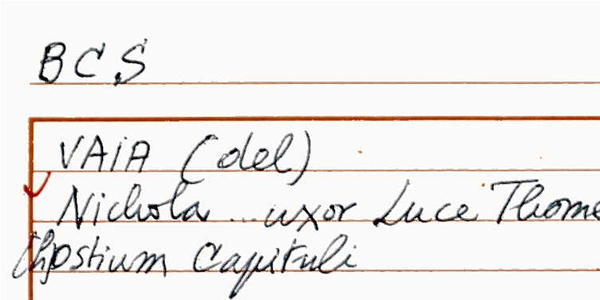 BCS
VAIA (del)
Nichola ... uxor Luce Thome
Capituli